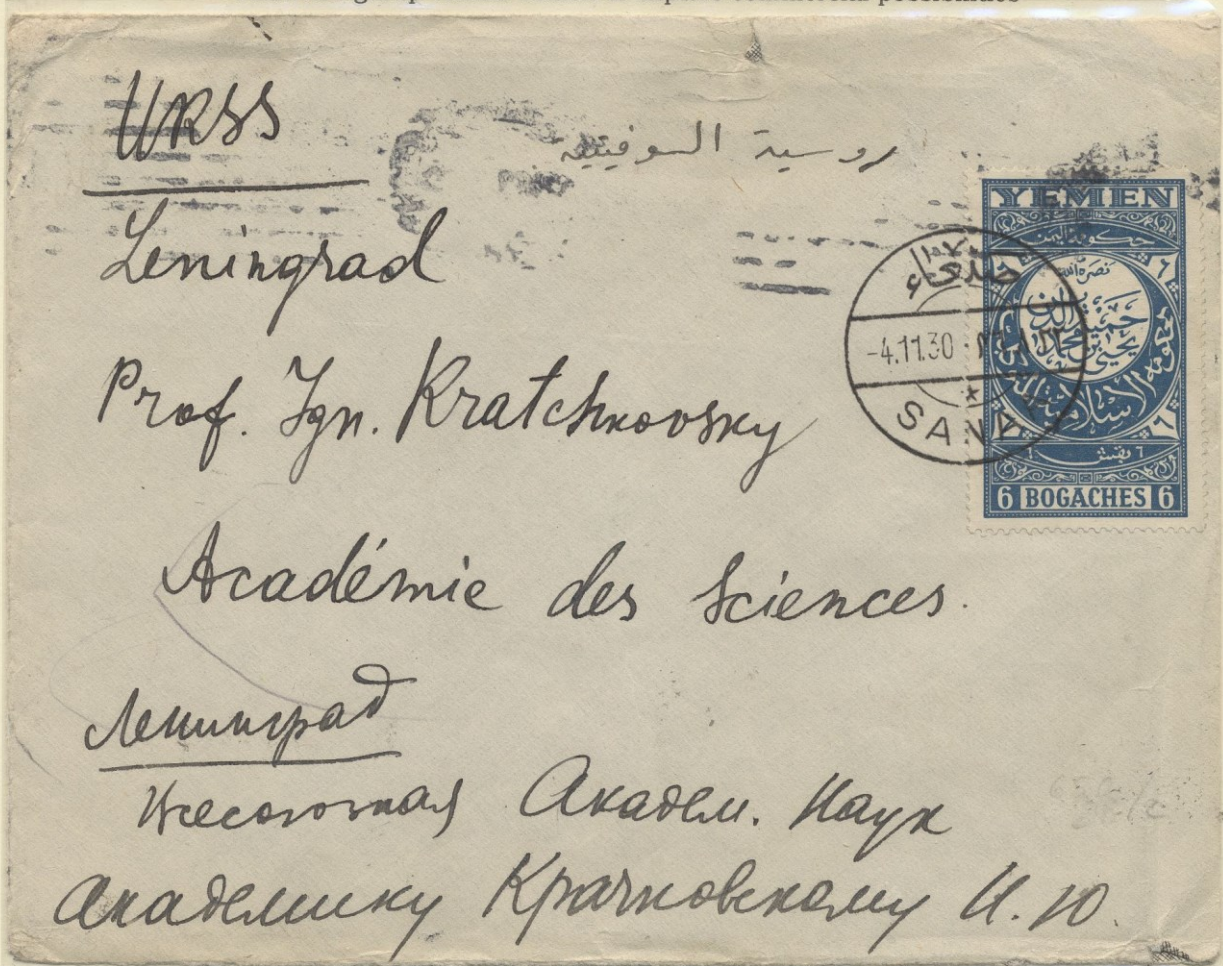 URSS
روسية السوفيتيه
Leningrad
Prof. Ign. Kratchkovsky
Académie des Sciences.
Ленинград
Всесоюзная Академ. Наук
Академику Крачковскому И. Ю.
YEMEN
نصره الله
حميد الدين
يحيى بن محمد
6 BOGACHES 6
صنعاء
-4.11.30
SANA